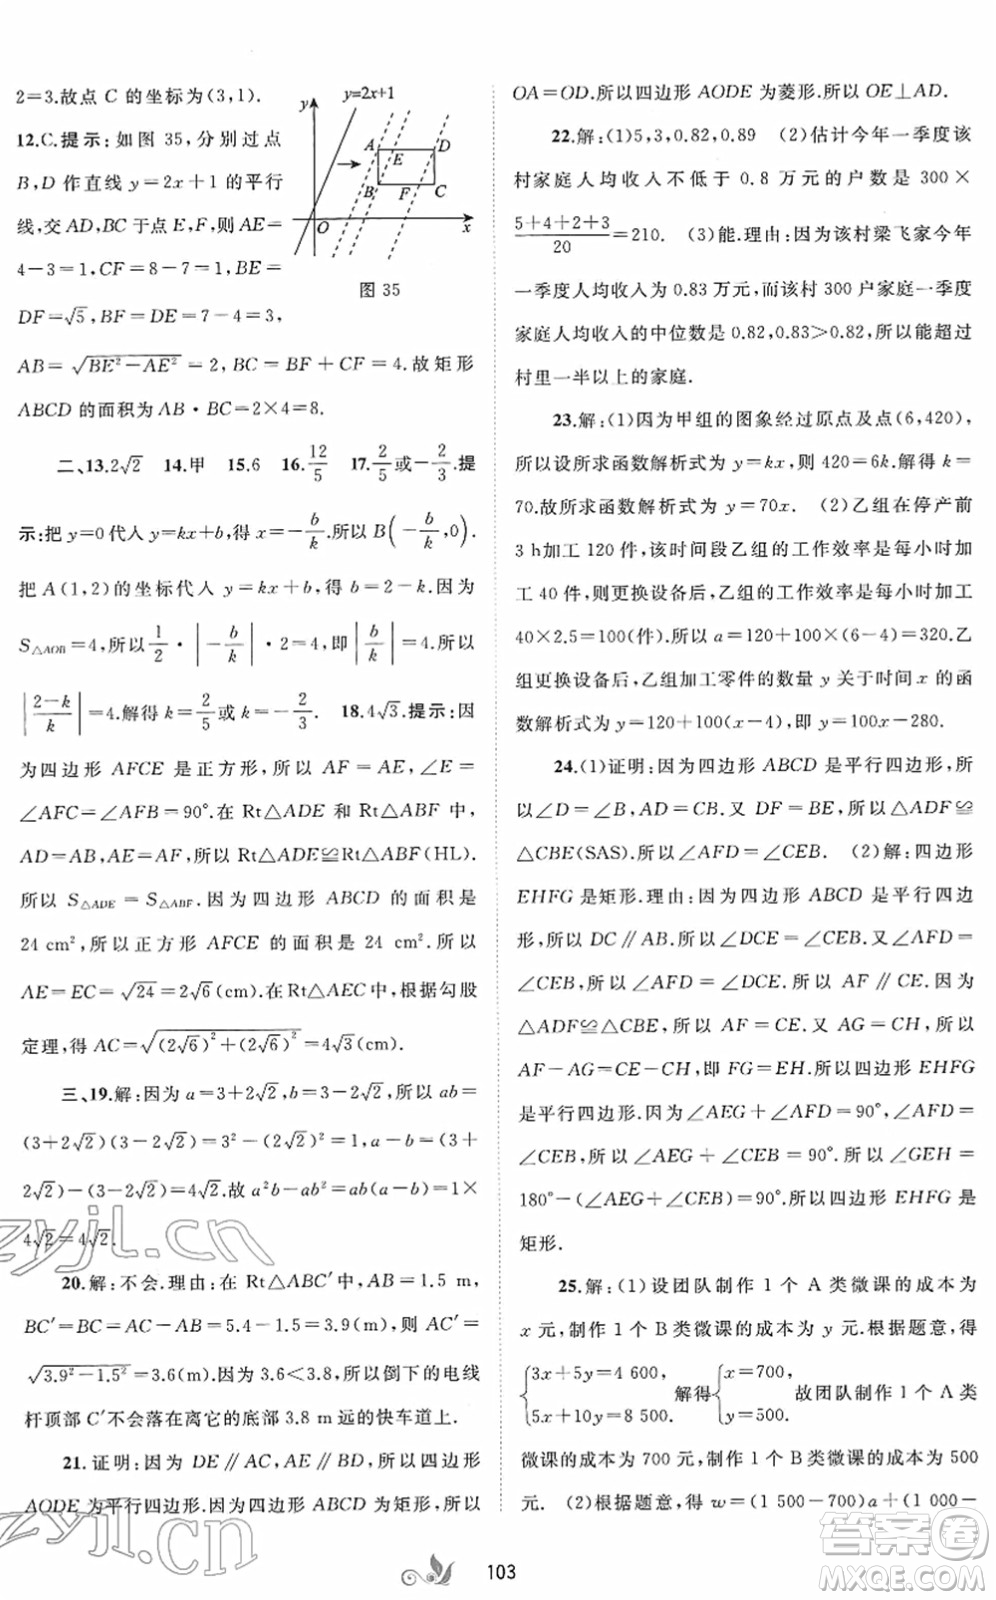 2=3.故点 C 的坐标为(3,1).
12.C.提示:如图 35,分别过点
B,D 作直线 y=2x+1 的平行
线,交 AD,BC 于点 E,F,则 AE=
4-3=1,CF=8-7=1,BE=
DF=√5,BF=DE=7-4=3,
y y=2x+1
A E D
B F C
O x
图 35
AB=√(BE²-AE²)=2,BC=BF+CF=4.故矩形
ABCD 的面积为 AB·BC=2×4=8.
二、13.2√2 14.甲 15.6 16.12/5 17.2/5或-2/3.提
示:把 y=0 代入 y=kx+b,得 x=-b/k.所以 B(-b/k,0).
把 A(1,2)的坐标代入 y=kx+b,得 b=2-k.因为
S△AOB=4,所以 1/2·|-b/k|·2=4,即|b/k|=4.所以
|(2-k)/k|=4.解得 k=2/5或 k=-2/3. 18.4√3.提示:因
为四边形 AFCE 是正方形,所以 AF=AE,∠E=
∠AFC=∠AFB=90°.在 Rt△ADE 和 Rt△ABF 中,
AD=AB,AE=AF,所以 Rt△ADE≌Rt△ABF(HL).
所以 S△ADE=S△ABF.因为四边形 ABCD 的面积是
24 cm²,所以正方形 AFCE 的面积是 24 cm².所以
AE=EC=√24=2√6(cm).在 Rt△AEC 中,根据勾股
定理,得 AC=√((2√6)²+(2√6)²)=4√3(cm).
三、19.解:因为 a=3+2√2,b=3-2√2,所以 ab=
(3+2√2)(3-2√2)=3²-(2√2)²=1,a-b=(3+
2√2)-(3-2√2)=4√2.故 a²b-ab²=ab(a-b)=1×
4√2=4√2.
20.解:不会.理由:在 Rt△ABC′中,AB=1.5 m,
BC′=BC=AC-AB=5.4-1.5=3.9(m),则 AC′=
√(3.9²-1.5²)=3.6(m).因为 3.6<3.8,所以倒下的电线
杆顶部 C′不会落在离它的底部 3.8 m 远的快车道上.
21.证明:因为 DE∥AC,AE∥BD,所以四边形
AODE 为平行四边形.因为四边形 ABCD 为矩形,所以
OA=OD.所以四边形 AODE 为菱形.所以 OE⊥AD.
22.解:(1)5,3,0.82,0.89 (2)估计今年一季度该
村家庭人均收入不低于 0.8 万元的户数是 300×
(5+4+2+3)/20=210. (3)能.理由:因为该村梁飞家今年
一季度人均收入为 0.83 万元,而该村 300 户家庭一季度
家庭人均收入的中位数是 0.82,0.83>0.82,所以能超过
村里一半以上的家庭.
23.解:(1)因为甲组的图象经过原点及点(6,420),
所以设所求函数解析式为 y=kx,则 420=6k.解得 k=
70.故所求函数解析式为 y=70x. (2)乙组在停产前
3 h加工 120 件,该时间段乙组的工作效率是每小时加
工 40 件,则更换设备后,乙组的工作效率是每小时加工
40×2.5=100(件).所以 a=120+100×(6-4)=320.乙
组更换设备后,乙组加工零件的数量 y 关于时间 x 的函
数解析式为 y=120+100(x-4),即 y=100x-280.
24.(1)证明:因为四边形 ABCD 是平行四边形,所
以∠D=∠B,AD=CB.又 DF=BE,所以△ADF≌
△CBE(SAS).所以∠AFD=∠CEB. (2)解:四边形
EHFG 是矩形.理由:因为四边形 ABCD 是平行四边
形,所以 DC∥AB.所以∠DCE=∠CEB.又∠AFD=
∠CEB,所以∠AFD=∠DCE.所以 AF∥CE.因为
△ADF≌△CBE,所以 AF=CE.又 AG=CH,所以
AF-AG=CE-CH,即 FG=EH.所以四边形 EHFG
是平行四边形.因为∠AEG+∠AFD=90°,∠AFD=
∠CEB,所以∠AEG+∠CEB=90°.所以∠GEH=
180°-(∠AEG+∠CEB)=90°.所以四边形 EHFG 是
矩形.
25.解:(1)设团队制作 1 个 A 类微课的成本为
x 元,制作 1 个 B 类微课的成本为 y 元.根据题意,得
{3x+5y=4 600, 5x+10y=8 500. 解得{x=700, y=500. 故团队制作 1 个 A 类
微课的成本为 700 元,制作 1 个 B 类微课的成本为 500
元. (2)根据题意,得 w=(1 500-700)a+(1 000-
103
zyjl.cn
zyjl.cn
答案卷
MXQE.COM